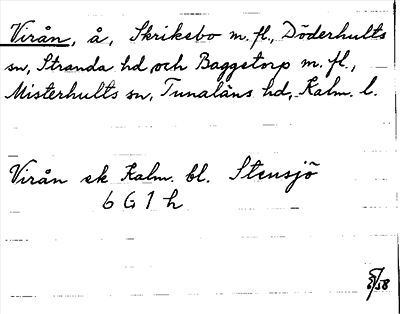 Virån, å, Skriksbo m. fl., Döderhults
sn, Stranda hd, och Baggetorp m. fl.,
Misterhults sn, Tunaläns hd, Kalm. l.
Virån ek Kalm. bl. Stensjö
6 G 1 h